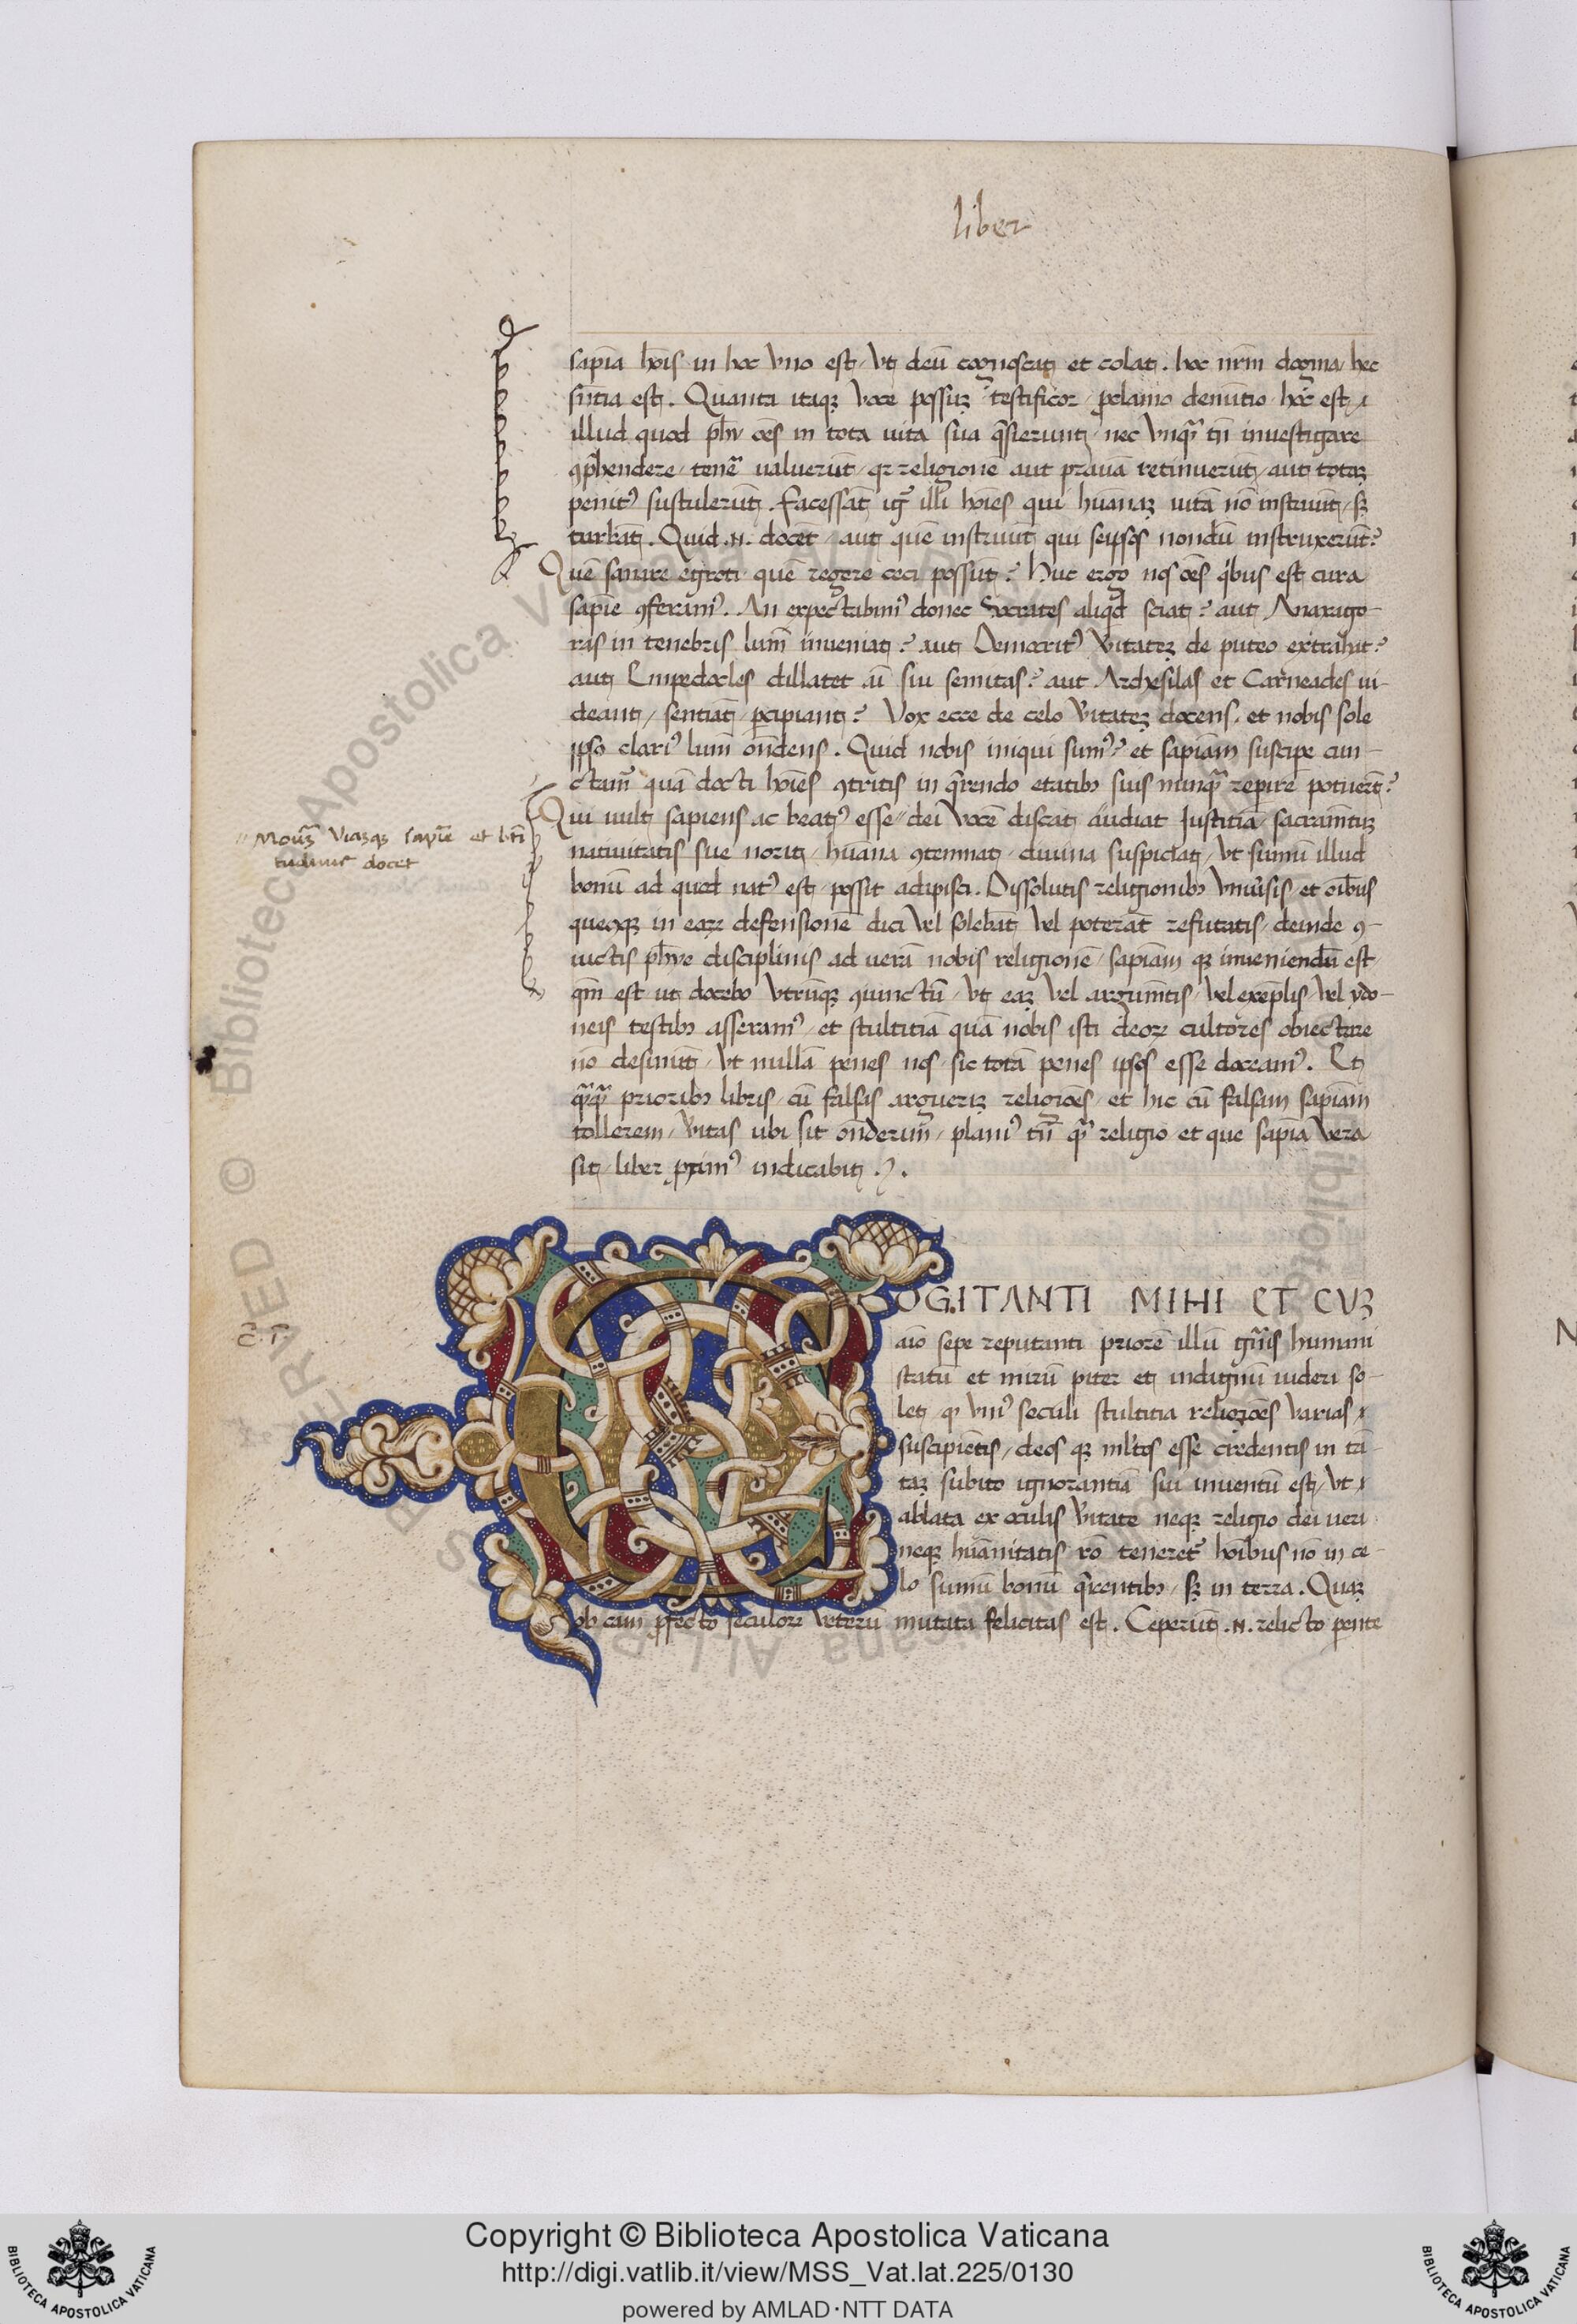 liber
sapīa hōis in hoc vno est, vt deū cognoscat et colat. hoc nr̄m dogma, hec
sn̄tia est. Quanta itaqꝫ voce possuꝫ testificor, p̱clamo denūtio, hoc est
illud quod ph̄i oēs in tota uita sua q̄sierunt, nec vnqᵃ̄ tn̄ inuestigare
ꝯp̄hendere, tenēꝭ ualuerūt, qꝛ religionē aut prauā retinuerūt, aut totaꝫ
penitꝰ sustulerūt. Facessāt igr̄ illi hoīes qui hūanaꝫ uitā nō instruūt, sꝫ
turbāt. Quid .N. docēt, aut quē instruūt qui seipsos nondū instruxerūt?
Quē sanare egroti, quē regere ceci possūt? Huc ergo nos oēs qͥbus est cura
sapīe ꝯferamꝰ. An expectabimꝰ donec Socrates aliqͥd sciat? aut Anaxago-
ras in tenebris lum̄ inueniat? aut Democritꝰ v̄itateꝫ de puteo extrahat?
aut Empedocles dillatet ai̅ sui semitas? aut Archesilas et Carneades ui-
deant, sentiāt, p̱cipiant? Vox ecce de celo v̄itateꝫ docens, et nobis sole
ipso clariꝰ lum̄ on̄dens. Quid nobis iniqui sumꝰ? et sapiām suscipe cun-
ctamꝭ quā docti hoīes ꝯtritis in q̄rendo etatibꝫ suis nunqᵃ̄ rep̱ire potuerūt?
Qui uult sapiens ac beatꝰ esse, dei vocē discat, audiat Iustitiā, sacramn̄tuꝫ
natiuitatis sue norit, hūana ꝯtemnat, diuina suspiciat, vt sumū illud
bonū ad quod natꝰ est, possit adipisci. Dissolutis religionibꝫ vniūsis et oībus
quecqꝫ in eaꝝ defensionē dici vel solebāt vel poterāt refutatis, deinde ꝯ-
uictis ph̄ie disciplinis ad uerā nobis religionē, sapiām qꝫ inueniendū est,
qm̄ est ut docebo vtrūqꝫ ꝯiunctū, vt eaꝫ vel argumn̄tis, vel exēplis, vel ydo-
neis testibꝫ asseramꝰ, et stultitiā quā nobis isti deoꝝ cultores obiectare
nō desinūt, vt nullā penes nos, sic totā penes ipsos esse doceamꝰ. Et
qᵃ̄qᵃ̄ prioribꝫ libris, cū falsas argueriꝫ religiōes, et hic cū falsam sapiām
tollerem, v̄itas ubi sit on̄derim̄, planiꝰ tn̄ qᵃ̄ religio et que sapīa vera
sit, liber p̱ximꝰ indicabit.
Mouꝭ viasqꝫ sapīe et bt̄i
tudinis docet
COGITANTI MIHI ET CVꝫ
aīo sepe reputanti priorē illū gn̄is humani
statū et mirū p̱iter et indignū uideri so-
let, qꝙ vniꝰ seculi stultitia religiōes varias
suscipiētis, deos qꝫ ml̄tos esse credentis in tā-
taꝫ subito ignorantiā sui uentū est, vt
ablata ex oculis v̄itate neqꝫ religio dei ueri
neqꝫ hūanitatis rō teneret᷑ hoībus nō in ce-
lo sumū bonū q̄rentibꝫ, sꝫ in terra. Quaꝫ
ob cam p̱fecto seculoꝝ veterū mutata felicitas est. Ceperūt .N. relicto pente
Copyright © Biblioteca Apostolica Vaticana
http://digi.vatlib.it/view/MSS_Vat.lat.225/0130
powered by AMLAD·NTT DATA
BIBLIOTECA APOSTOLICA VATICANA
BIBLIOTECA APOSTOLICA VATICANA